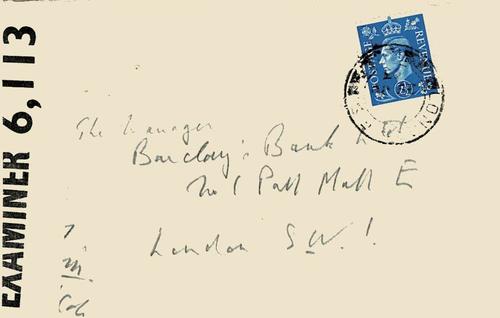 EXAMINER 6,113
POSTAGE REVENUE
2½
The Manager
Barclay's Bank
No 1 Pall Mall E
London S.W.1